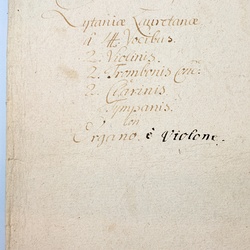 Lytaniæ Lauretanæ
à 4. Vocibus.
2. Violinis.
2. Trombonis
2. Clarinis
Tympanis.
Con
Organo è Violone.